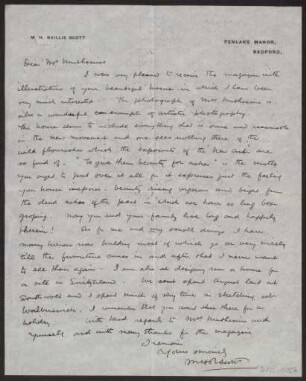 M. H. BAILLIE SCOTT.
FENLAKE MANOR,
BEDFORD.
Dear Mr Muthesius
I was very pleased to receive the magazine with
illustrations of your beautiful house in which I have been
very much interested. The photograph of Mrs Muthesius is
also a wonderful example of artistic photography.
The house seems to include everything that is sane and reasonable
in the new movement and one sees nothing there of the
wild flourishes which the exponents of the new art are
so fond of. "To give them beauty for ashes" is the motto
you ought to put over it all for it expresses just the feeling
your house inspires. beauty rising and bright from
the dead ashes of the past in which we have so long been
groping. May you and your family live long and happily
therein! As for me and my small doings I have
many houses now building most of which go on very nicely
till the furniture comes in and after that I never want
to see them again. I am also at designing now a house for
a site in Switzerland. We spent August last at
Southwold and I spent much of my time in sketching at
Walberswick. I remember that you went there for a
holiday. With kind regards to Mrs Muthesius and
yourself and with many thanks for the magazine
I remain
Yours sincerely
M H Baillie Scott